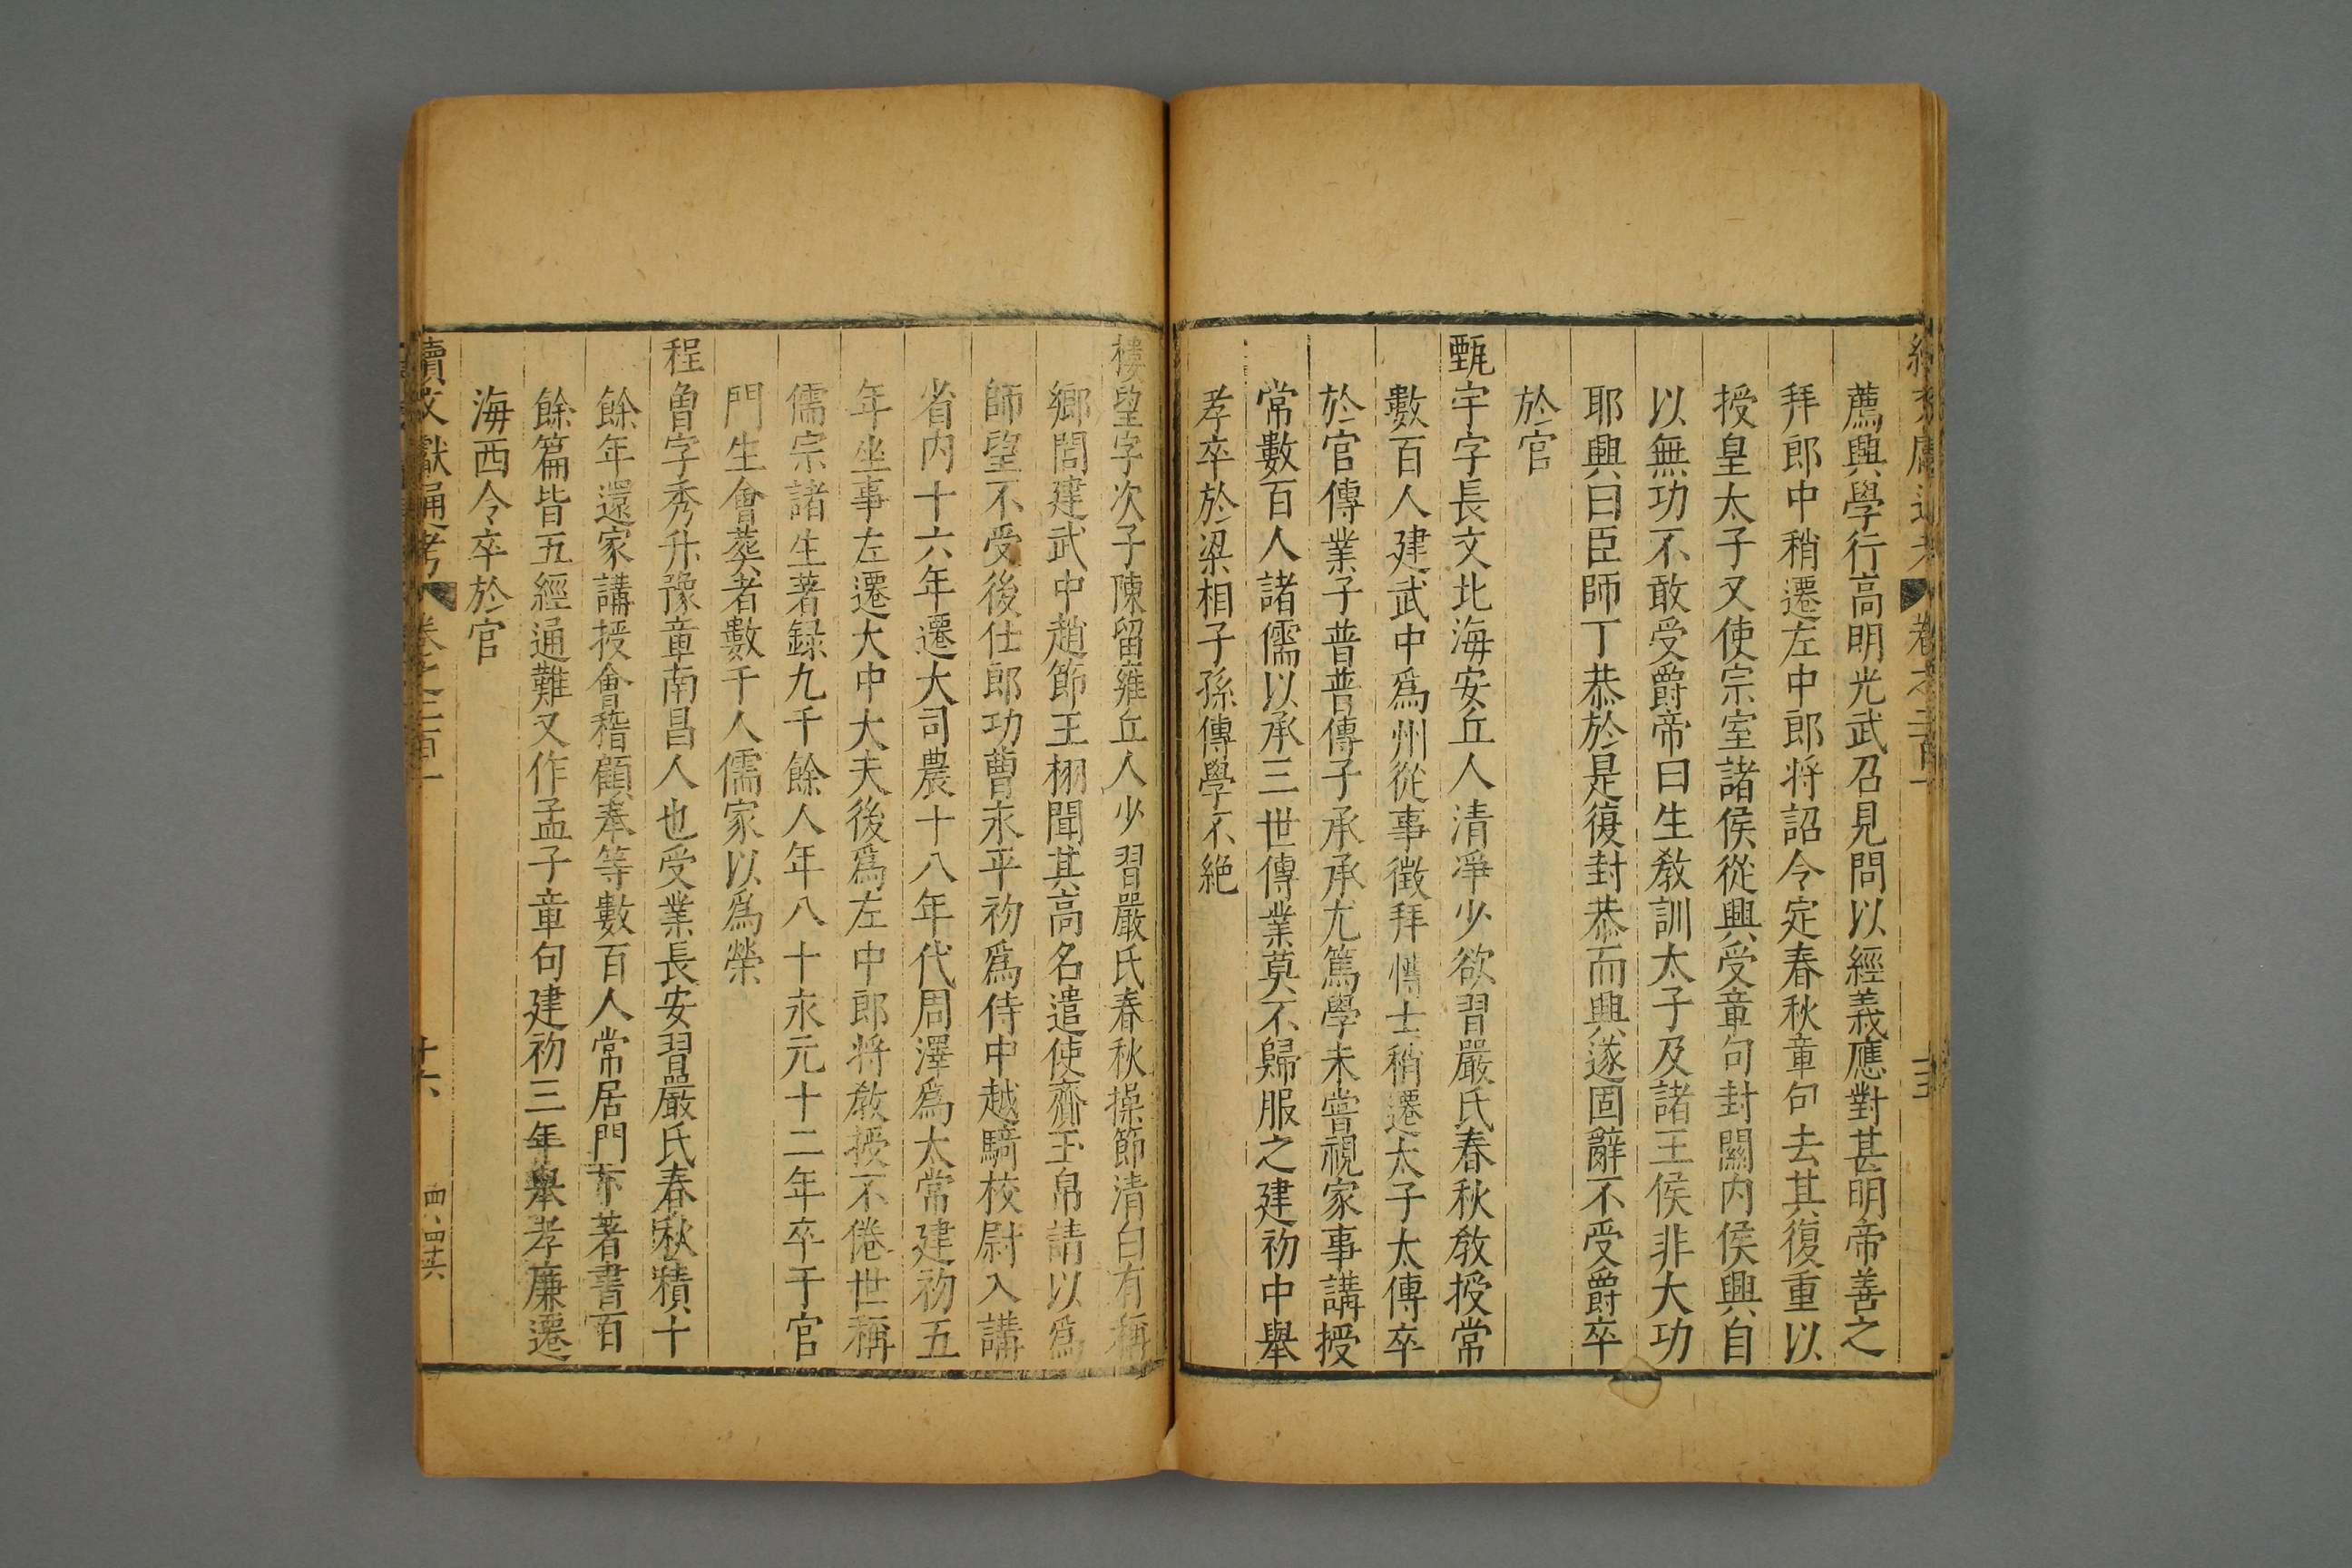 薦興學行高明光武召見問以經義應對甚明帝善之
拜郎中稍遷左中郎將詔令定春秋章句去其復重以
授皇太子又使宗室諸侯從興受章句封關內侯興自
以無功不敢受爵帝曰生教訓太子及諸王侯非大功
耶興曰臣師丁恭於是復封恭而興遂固辭不受爵卒
於官
甄宇字長文北海安丘人清淨少欲習嚴氏春秋教授常
數百人建武中爲州從事徵拜博士稍遷太子太傅卒
於官傳業子普普傳子承承尤篤學未嘗視家事講授
常數百人諸儒以承三世傳業莫不歸服之建初中舉
孝卒於梁相子孫傳學不絶
樓望字次子陳留雍丘人少習嚴氏春秋操節清白有稱
鄉閭建武中趙節王栩聞其高名遣使齎玉帛請以爲
師望不受後仕郎功曹永平初爲侍中越騎校尉入講
省内十六年遷大司農十八年代周澤爲太常建初五
年坐事左遷大中大夫後爲左中郎將教授不倦世稱
儒宗諸生著録九千餘人年八十永元十二年卒于官
門生會葬者數千人儒家以爲榮
程曾字秀升豫章南昌人也受業長安習嚴氏春秋積十
餘年還家講授會稽顧奉等數百人常居門下著書百
餘篇皆五經通難又作孟子章句建初三年舉孝廉遷
海西令卒於官
續文獻通考 卷之二百一 十六 四、四十六